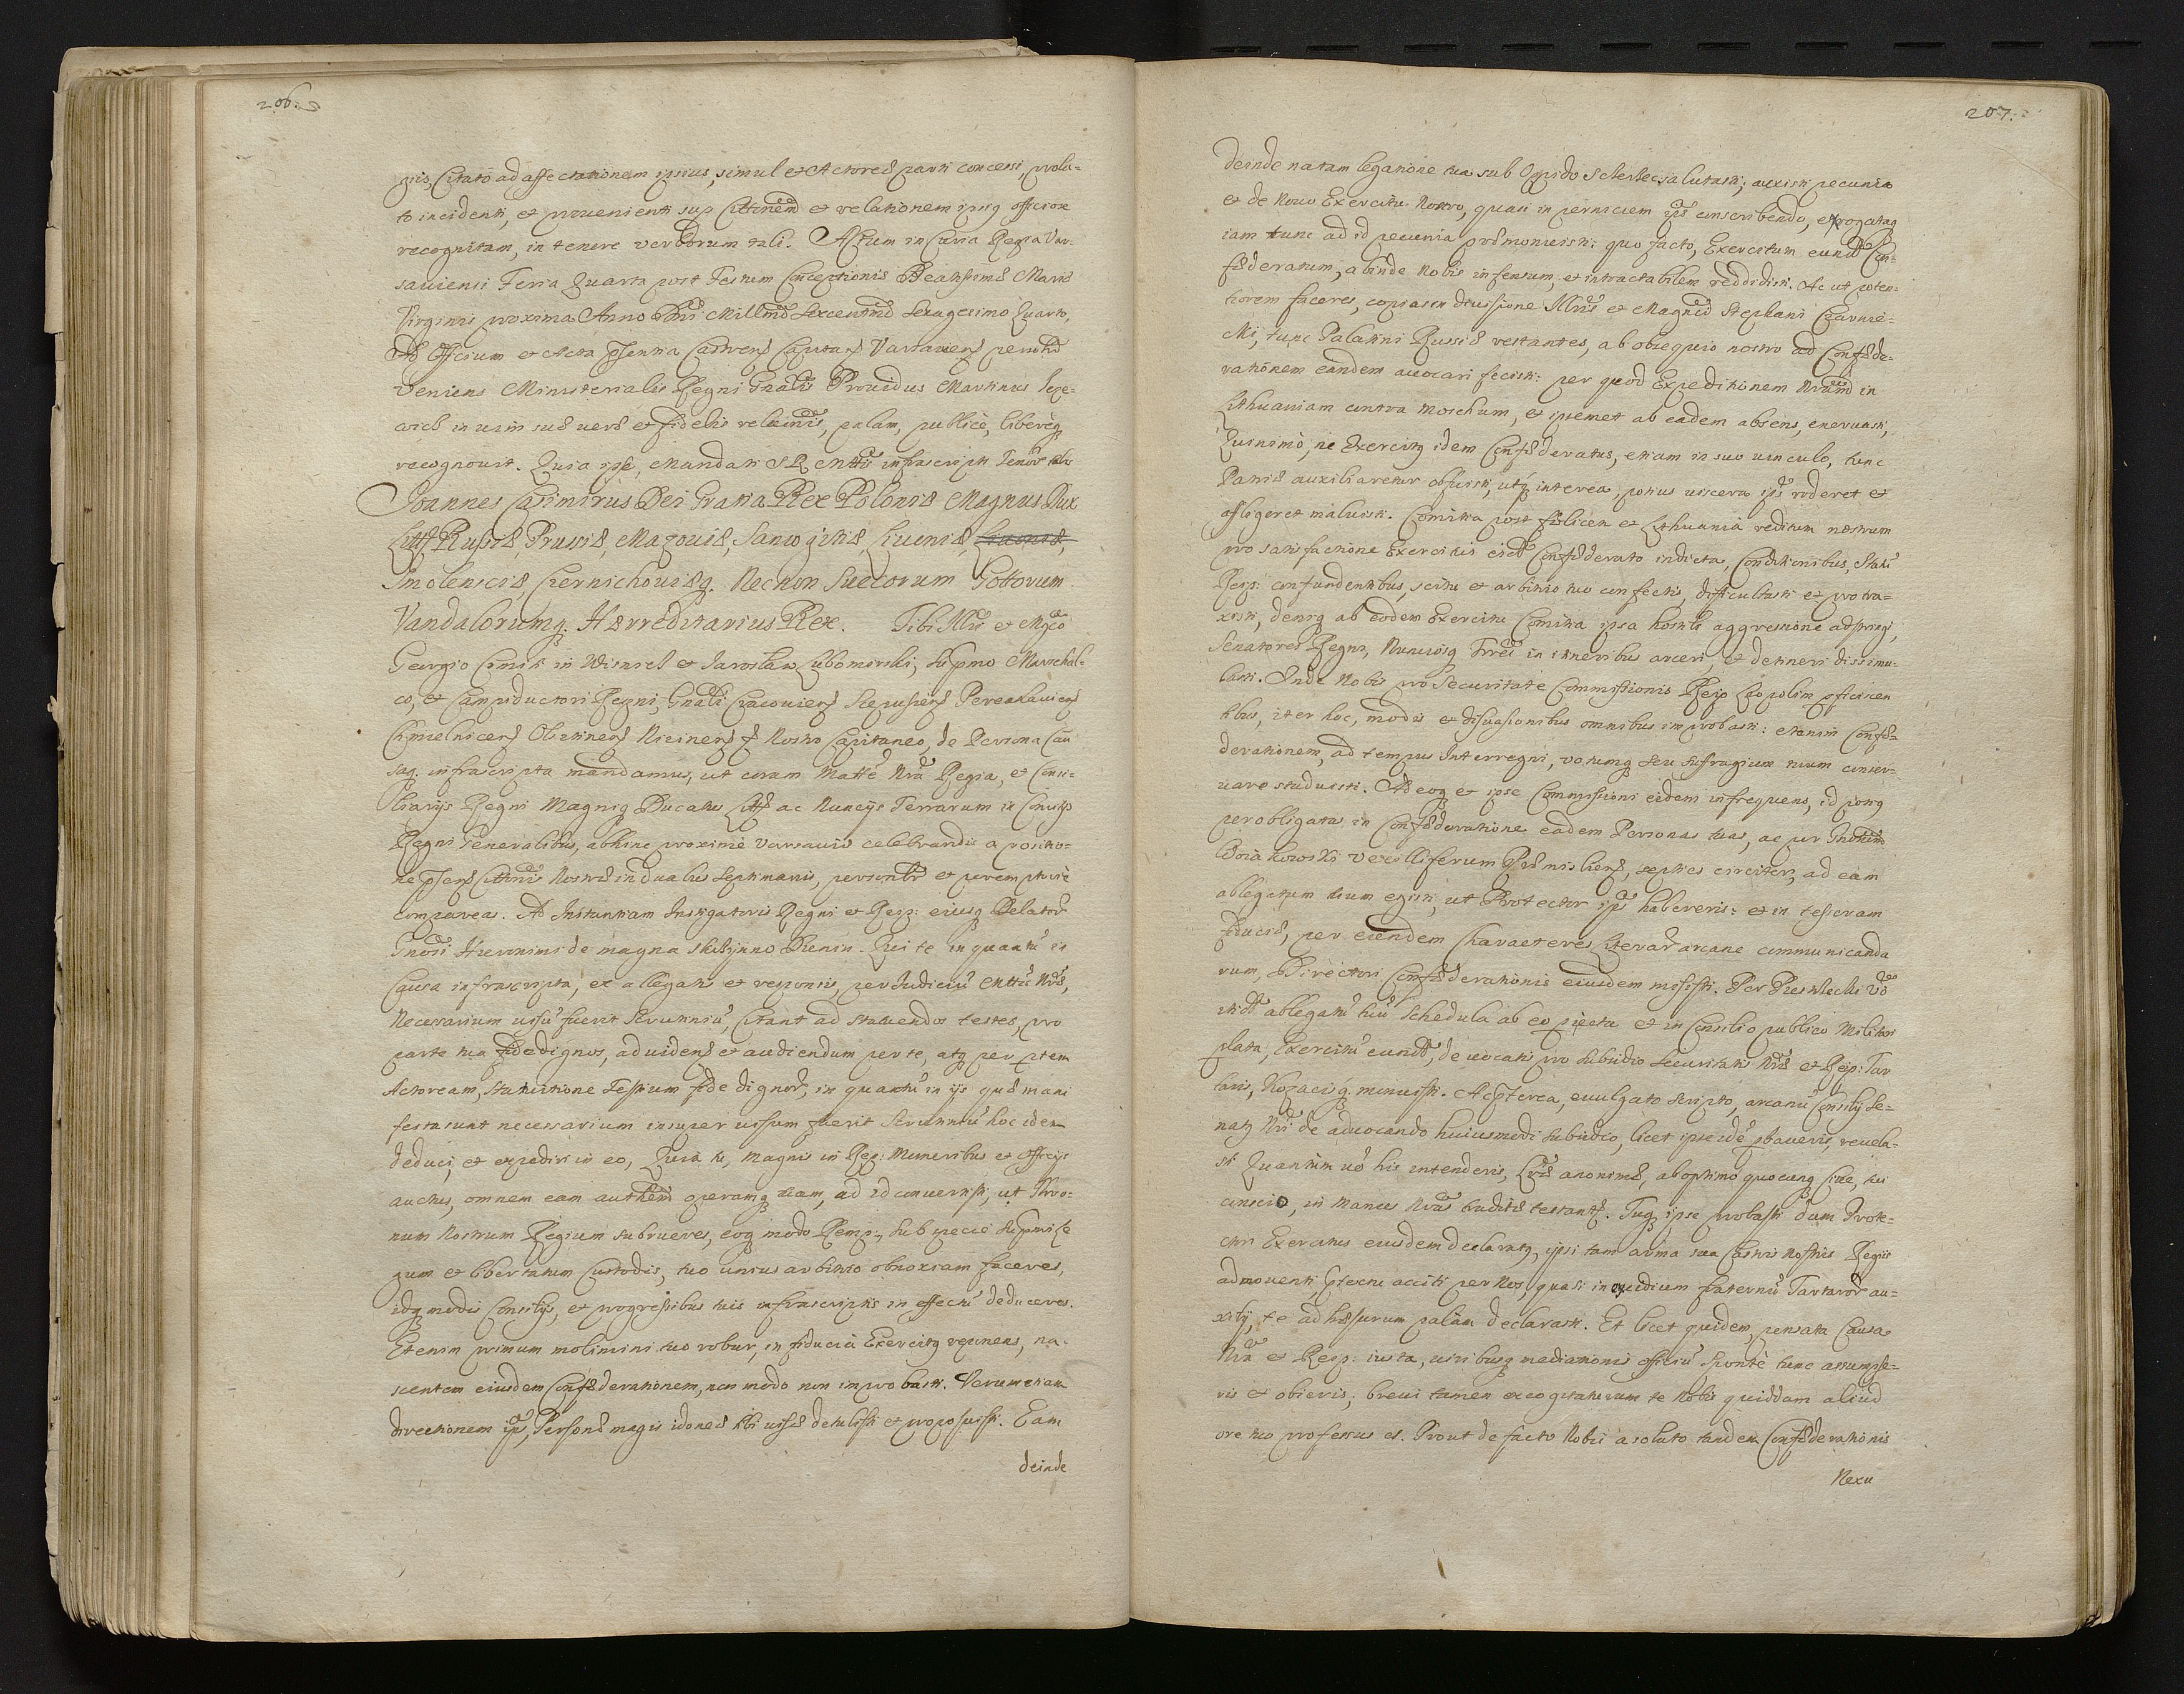 206.
gijs, Citato ad affectationem ipsius, simul et Actoreæ parti concessi, prola-
to incidenti, et provenienti sup Citñem et relationem ipsiq officiose
recognitam, in tenore verborum tali. Actum in Curia Regia Var-
saviensi Feria Quarta post Festum Conceptionis Beatissimæ Mariæ
Virginis proxima Anno Dni Millmo Sexcentmo Sexagesimo Quarto,
Ad Officium et Acta Psentia Castren Capitan Varsavien personlr
veniens Ministerialis Regni Gnalis Providus Martinus
in vim suæ veræ et fidelis relaõnis, palam, publicè, liberèq
recognovit. Quia ipse, Mandati S R Mttis infrascripti Tenoris talis
Joannes Casimirus Dei Gratia Rex Poloniæ Magnus Dux
Litt Russiæ Prussiæ, Mazoviæ, Samogitiæ, Livoniæ,
Smolensciæ, Czernichoviæq. Necnon Suecorum Gottorum
Vandalorumq. Hærreditarius Rex. Tibi Illri et Mgco
Georgio Comiti in Wisnicz et Jaroslaw Lubomirski, Supmo Marschal-
co, et Campiductori Regni, Gnali Cracovien Scepusien Pereaslavien
Chmielnicen Olsztinen Niezinen & Nostro Capitaneo, de Persona Cau
saq. infrascripta mandamus, ut coram Matte Nra Regia, et Consi-
liarijs Regni Magniq Ducatus Litt ac Nuncijs Terrarum in Comitijs
Regni Generalibus, abhinc proximè Varsaviæ celebrandis a positio-
ne Psen Citõnis Nostræ in duabus Septimanis, personlr et peremptoriè
compareas. Ad Instantiam Instigatoris Regni et Reip: eiusq Delator
Gnosi Hieronimi de magna Skrzynno Dunin. Qui te in quantu in
Causa infrascripta, ex allegatis et responsis, per Judiciu Mttis Nræ,
Necessarium visu fuerit Scrutiniu, Citant ad statuendos testes, pro
parte tua fidedignos, ad viden et audiendum per te, atq per ptem
Actoream, statuitione Testium fide dignor, in quantu in ijs quæ mani
festa sunt necessarium insuper visum fuerit Scrutiniu hoc idem
deduci, et expediri in eo, Quia tu, magnis in Rep: Muneribus et Officijs
auctus, omnem eam authem operamq tuam, ad id convertisti, ut Thro-
num Nostrum Regium subrueres, eoq modo Remp:, sub specie supmi le
gum et libertatum Custodis, tuo unius arbitrio obnoxiam faceres,
idq modis Consilijs, et progressibus tuis infrascriptis in effectu deduceres.
Etenim primum molimini tuo robur, in fiducia Exercitq reponens, na-
scentem eiusdem Confæderationem, non modo non improbasti. Verum etiam
directionem ipi, Personæ magis idoneæ tibi visæ detulisti et proposuisti. Eam
deinde
207.
deinde natam legatione tua sub Oppido salutasti; auxisti pecunia
et de Novo Exercitu Nostro, quasi in perniciem ipi conscribendo, erogataq
iam tunc ad id pecunia præmonuisti: quo facto, Exercitum eund Con-
fæderatum, abinde Nobis infensum, et intractabilem reddidisti. Ac ut poten-
tiorem faceres, copias in divisione Illris et Magnci Stephani Czarnie-
cki, tunc Palatini Russiæ restantes, ab obsequio nostro ad Confæde-
rationem eandem avocari fecisti: per quod Expeditionem Nram in
Lithuaniam contra Moschum, et ipsemet ab eadem absens, enervasti,
Quinimò, ne Exercitq idem Confæderatus, etiam in suo vinculo, tunc
Patriæ auxiliaretur obfuisti, utq interea, potius viscera ipi roderet et
affligeret maluisti. Comitia post fælicem et Lithuania reditum nostrum
pro satisfactione Exercitus eid Confæderato indicta, Conditionibus, Statu
Reip: confundentibus, scitu et arbitrio tuo confectis, difficultasti et protra-
xisti, deniq ab eodem Exercitu Comitia ipsa hostili aggressione adstringi,
Senatores Regni, Nunciosq Trres in itineribus arceri, et detineri dissimu-
lasti. Inde Nobis pro Securitate Commissionis Reip Leopolim pficiscen
tibus, iter hoc, modis et disuasionibus omnibus improbasti: etenim Confæ-
derationem, ad tempus Interregni, votumq seu suffragium tuum conser-
vare studuisti. Ad eoq et ipse Commissioni eidem infrequens, id potiq
per obligatas in Confæderatione eadem Personas tuas, ac per Gnosum
Boiakowski Vexilliferum Præmislien, septies circiter, ad eam
ablegatum tuum egisti, ut Protector ipi habereris: et in tesseram
fiduciæ, per eundem Characteres literar arcane communicanda
rum, Directori Confæderationis eiusdem misisti. Per Vo
itid ablegatu tuu Schedula ab eo piecta et in Consilio publico Militari
plata, Exercitu eund, de vocatis pro subsidio securitatis Nræ et Reip: Tar
taris, Kozacisq. monuisti. Ac Pterea, evulgato scripto, arcanu Consilij Se-
natq Nri de advocando huiusmodi subsidio, licet ipse idè pbaveris, revela-
sti Quantùm vo his intenderis, Lræ anonimæ, ab optimo quocunq Cive, tui
conscio, in manus Nras traditæ testantr. Tuq ipse probasti dum Prote-
ctor Exercitus eiusdem declaratq, ipsi tam arma sua Castris Nostris Regijs
admoventi, Ptextu acciti per Nos, quasi in exidium fraternu Tartaror au-
xilij, te adhæsurum palàm declarasti. Et licet quidem, pensata Causa
Nra et Reip: iusta, viribusq mediationis officiu Spontè tunc assumpse-
ris et obieris, brevi tamen excogitaturum te Nobis quiddam aliud
ore tuo professus es. Prout de facto Nobis a soluto tandem Confæderationis
Nexu